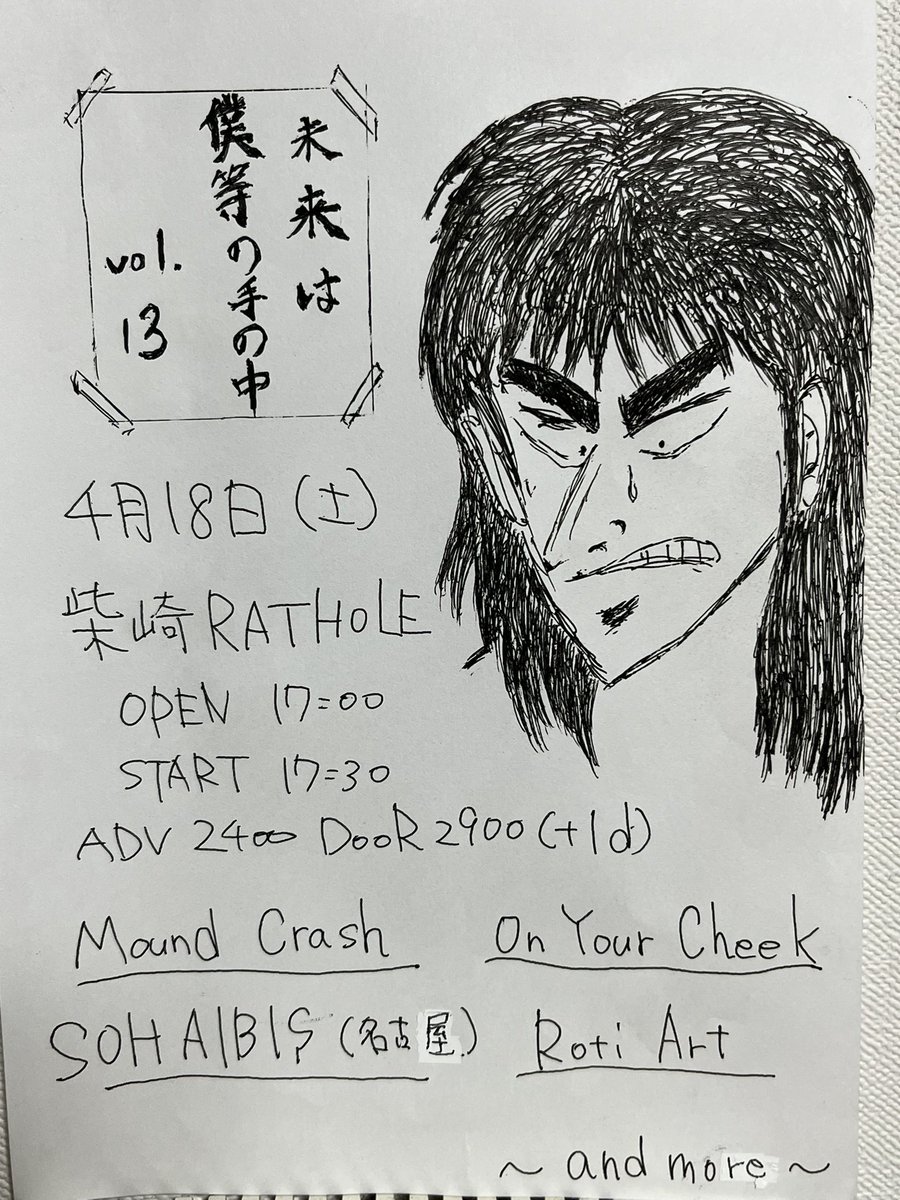 未来は
僕等の手の中
vol.
13
4月18日(土)
柴崎RATHOLE
OPEN 17:00
START 17:30
ADV 2400 DOOR 2900 (+1d)
Mound Crash
On Your Cheek
SOHAIBIS (名古屋)
Roti Art
~ and more ~